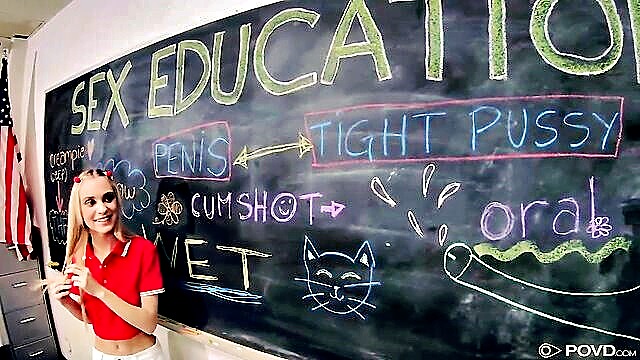 SEX EDUCATIO
creampie
PENIS
TIGHT PUSSY
CUMSHOT
oral
WET
POVD.COM